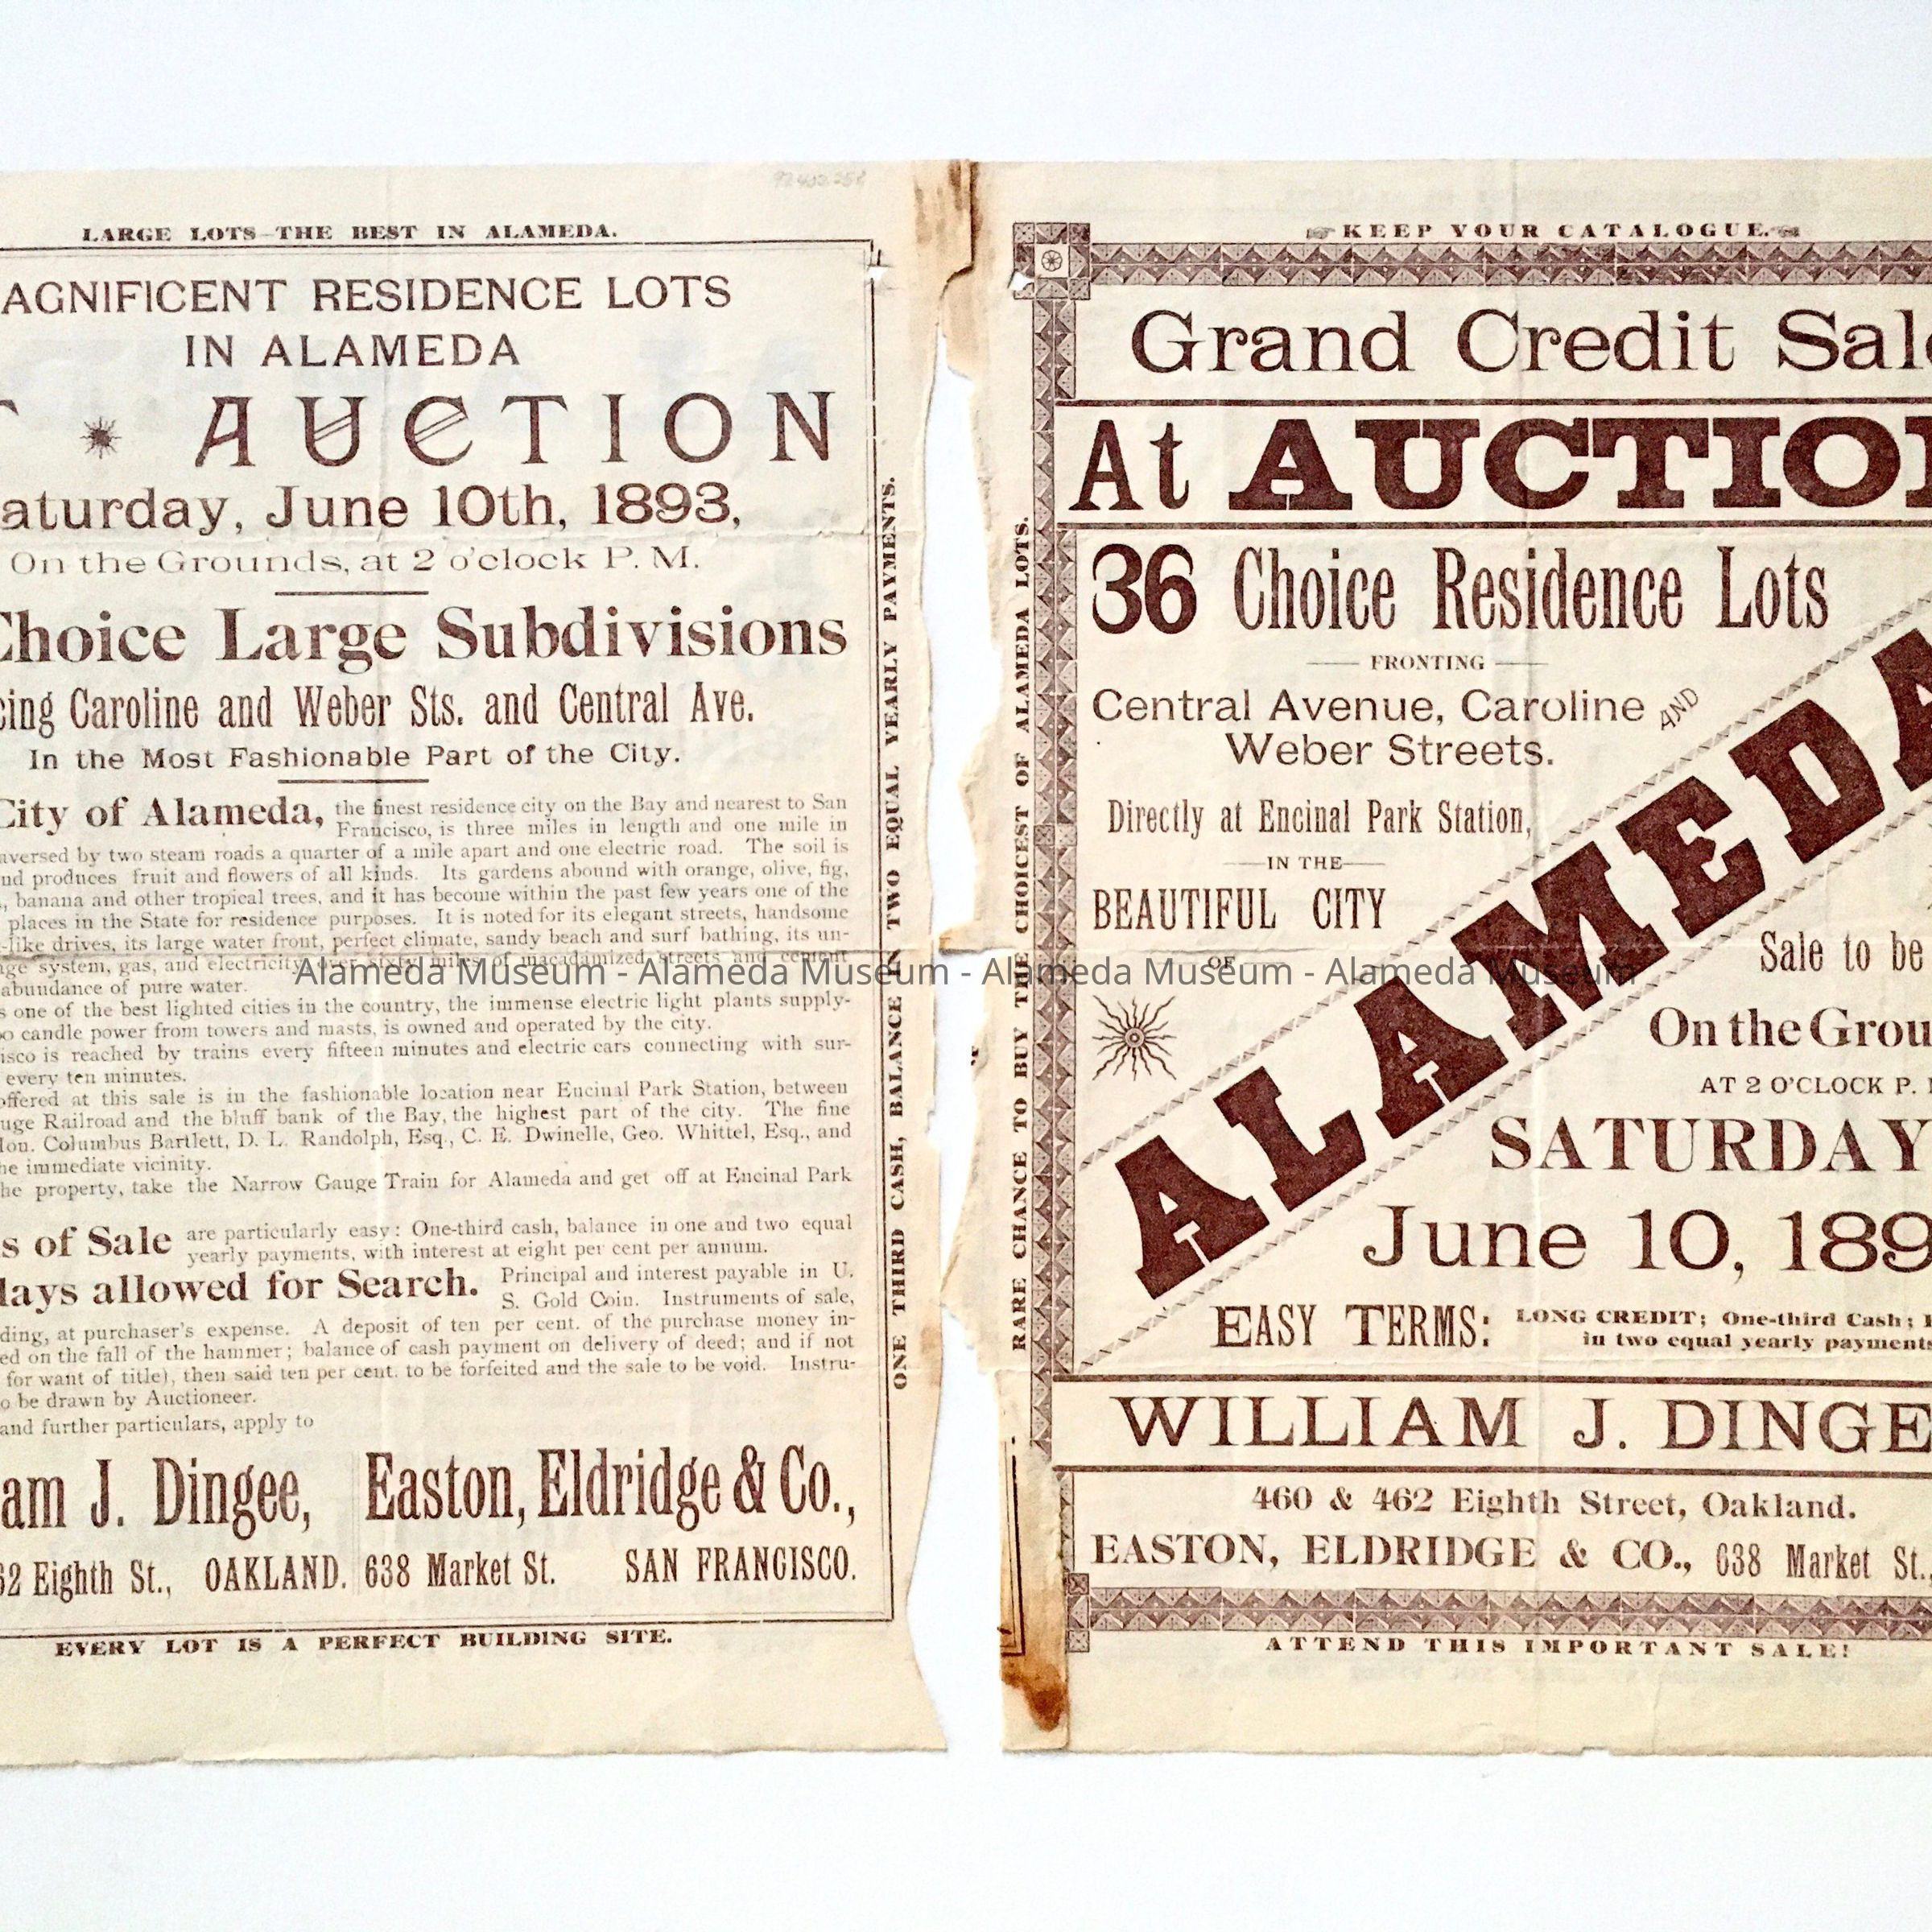 LARGE LOTS—THE BEST IN ALAMEDA.
AGNIFICENT RESIDENCE LOTS
IN ALAMEDA
T * AUCTION
aturday, June 10th, 1893,
On the Grounds, at 2 o'clock P. M.
Choice Large Subdivisions
cing Caroline and Weber Sts. and Central Ave.
In the Most Fashionable Part of the City.
City of Alameda, the finest residence city on the Bay and nearest to San
Francisco, is three miles in length and one mile in
aversed by two steam roads a quarter of a mile apart and one electric road. The soil is
nd produces fruit and flowers of all kinds. Its gardens abound with orange, olive, fig,
, banana and other tropical trees, and it has become within the past few years one of the
places in the State for residence purposes. It is noted for its elegant streets, handsome
-like drives, its large water front, perfect climate, sandy beach and surf bathing, its un-
age system, gas, and electricity, over sixty miles of macadamized streets and cement
abundance of pure water.
s one of the best lighted cities in the country, the immense electric light plants supply-
oo candle power from towers and masts, is owned and operated by the city.
isco is reached by trains every fifteen minutes and electric cars connecting with sur-
every ten minutes.
offered at this sale is in the fashionable location near Encinal Park Station, between
uge Railroad and the bluff bank of the Bay, the highest part of the city. The fine
Hon. Columbus Bartlett, D. L. Randolph, Esq., C. E. Dwinelle, Geo. Whittel, Esq., and
he immediate vicinity.
he property, take the Narrow Gauge Train for Alameda and get off at Encinal Park
s of Sale are particularly easy: One-third cash, balance in one and two equal
yearly payments, with interest at eight per cent per annum.
days allowed for Search. Principal and interest payable in U.
S. Gold Coin. Instruments of sale,
ding, at purchaser's expense. A deposit of ten per cent. of the purchase money in-
ed on the fall of the hammer; balance of cash payment on delivery of deed; and if not
for want of title), then said ten per cent. to be forfeited and the sale to be void. Instru-
o be drawn by Auctioneer.
and further particulars, apply to
am J. Dingee,
62 Eighth St., OAKLAND.
Easton, Eldridge & Co.,
638 Market St. SAN FRANCISCO.
EVERY LOT IS A PERFECT BUILDING SITE.
ONE THIRD CASH, BALANCE IN TWO EQUAL YEARLY PAYMENTS.
RARE CHANCE TO BUY THE CHOICEST OF ALAMEDA LOTS.
KEEP YOUR CATALOGUE.
Grand Credit Sale
At AUCTION
36 Choice Residence Lots
FRONTING
Central Avenue, Caroline AND
Weber Streets.
Directly at Encinal Park Station,
IN THE
BEAUTIFUL CITY
OF
ALAMEDA
Sale to be
On the Grou
AT 2 O'CLOCK P.
SATURDAY
June 10, 189
EASY TERMS: LONG CREDIT; One-third Cash;
in two equal yearly payments
WILLIAM J. DINGE
460 & 462 Eighth Street, Oakland.
EASTON, ELDRIDGE & CO., 638 Market St.,
ATTEND THIS IMPORTANT SALE!
Alameda Museum - Alameda Museum - Alameda Museum - Alameda Museum